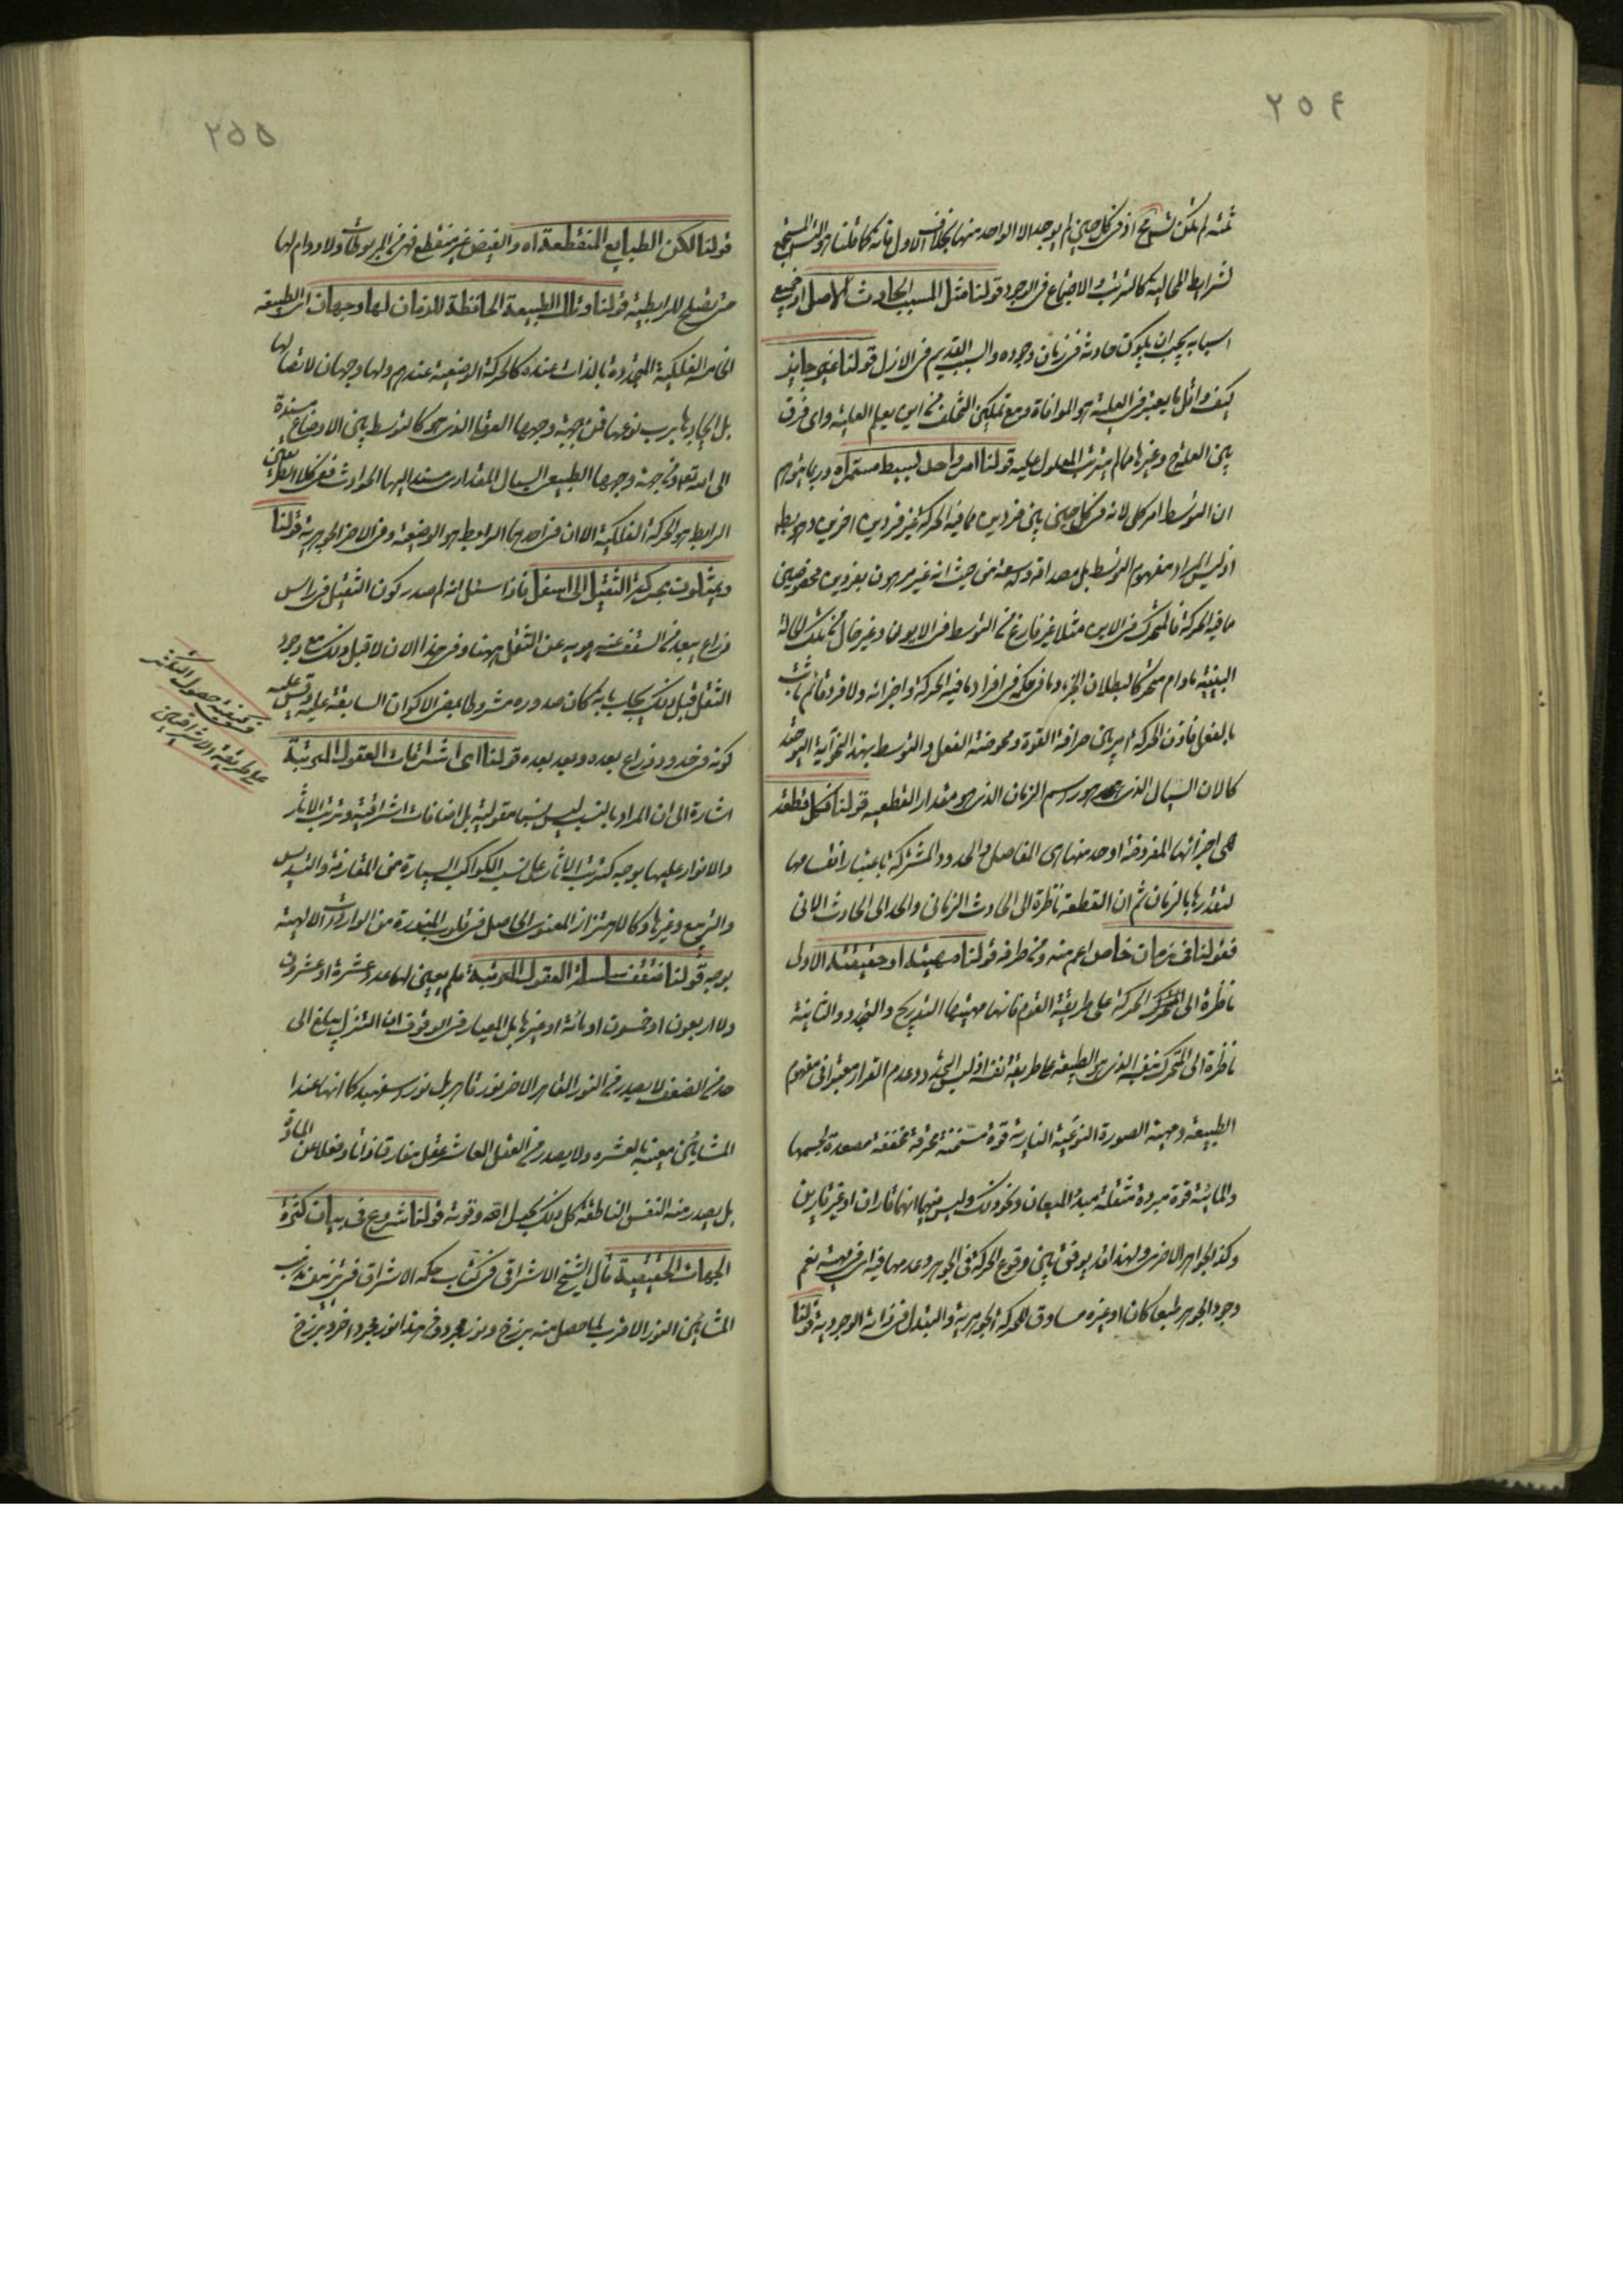 ٢٥٤
ثمة لم يكن تشريح اذ فى كل حين لم يوجد الا الواحد منها بخلاف الاول فانه كما قلنا هو المستجمع
لشرايط المحالية كالترتب والاجتماع فى الوجود قولنا مثل المسبب الحادث الاصل او جميع
اسبابه يجب ان يكون حادثة فى زمان وجوده والسبب القديم فى الازل قولنا غير جايز
كيف واقل ما يعتبر فى العلية هو الموافاة ومع تمكين التخلف من اين يعلم العلية واى فرق
بين العلة ح وغيرها مما لم يترتب المعلول عليه قولنا امر واحد بسيط مستمر اه وربما يتوهم
ان التوسط امر كلى لانه فى كل حين بين فردين مما فيه الحركة غير فردين اخرين وهو باطل
اذ ليس المراد مفهوم التوسط بل مصداقه وله سعة من حيث انه غير مرهون بفردين مخصوصين
ما فيه الحركة فالمتحرك فى الاين مثلا غير فارغ من التوسط فى الايون وغير خال من تلك الحالة
البينية مادام متحركا لبطلان الجزء وما فى حكمه فى افراد ما فيه الحركة واجزائه ولا فرد قائم ثابت
بالفعل فاذن الحركة امر بين صرافة القوة ومحوضة الفعل والتوسط بهذا النحو آية التوحيد
كالان السيال الذى هو راسم الزمان الذى هو مقدار القطعية قولنا فكل قطعة
هى اجزائها المفروضة او حد منها اى المفاصل والحدود المشتركة باعتبار انقسامها
لتقدرها بالزمان ثم ان القطعة ناظرة الى الحادث الزمانى والحد الى الحادث الانى
فقولنا فى زمان خاص اعم منه ومن طرفه قولنا مهيته او حقيقته الاولى
ناظرة الى الحركة على طريقة القوم فانها مهيتها التدريج والتجدد والثانية
ناظرة الى المتحرك بنفسه الذى هو الطبيعة على طريقة نفسه اذ ليس التجدد وعدم القرار معتبرا فى مفهوم
الطبيعة ومهية الصورة النوعية النارية قوة مسخنة محرقة مخففة مصعدة لجسمها
والمائية قوة مبردة مثقلة مبدء الميعان ونحو ذلك وليس فيها انها قاران او غير قارين
وكذا الجواهر الاخرى ولهذا قد يوفق بين وقوع الحركة فى الجوهر وعدمها فيه اى فى مهيته نعم
وجود الجوهر طبعا كان او غيره مساوق للحركة الجوهرية والتبدل فى ذاته الوجودية قولنا
٢٥٥
قولنا لكن الطبايع المنقطعة اه والفيض غير منقطع فهى من المربوطات ولا دوام لها
حتى تصلح للرابطية قولنا وتلك الطبيعة الحافظة للزمان لها وجهان اى الطبيعة
الخامسة الفلكية المتجددة بالذات عنده كالحركة الوضعية عندهم ولها وجهان لاتصالها
بل اتحادها برب نوعها فمن جهة وجهها العقلى الذى هو كالتوسط بين الاوضاع مستندة
الى الله تعالى ومن جهة وجهها الطبيعى السيال المقدارى مستند اليها الحوادث ففى كلا الطريقين
الرابط هو الحركة الفلكية الا ان فى احدهما الرابط هو الوضعية وفى الاخر الجوهرية قولنا
ويمثلون بحركة الثقيل الى اسفل فاذا سئل انه لم صدر كون الثقيل فى راس
ذراع يبعد من السقف عنه هويه عن الثقل ههنا وفى هذا الان لا قبل ذلك مع وجود
الثقل قبل ذلك يجاب بانه كان صدوره مشروطا ببعض الاكوان السابقة عليه وقس عليه
كونه فى حدود ذراع بعده وبعد بعده قولنا اى اشراقات العقول المرتبة
اشارة الى ان المراد بالنسب ليس نسبا مقولية بل اضافات اشراقية وترتب الاثار
والانوار عليها بوجه كترتب الاثار على نسب الكواكب السيارة من المقارنة والتسديس
والتربيع وغيرها وكالاهتزاز المعنوى الحاصل فى قلوب المنورة من الواردات الالهية
بوجه قولنا فتقف سلسلة العقول المرتبة فلم يعين لها عدد عشرة او عشرون
ولا اربعون او خمسون او مائة او غيرها بل المعيار فى الوقوف ان التنزل يبلغ الى
حد من الضعف لا يصدر من النور القاهر الاخر نور قاهر بل نور اسفهبد كما انها عند
المشائين معينة بالعشرة ولا يصدر من العقل العاشر عقل مفارق ذاتا وفعلا عن المادة
بل يصدر منه النفس الناطقة كل ذلك بحول الله وقوته قولنا شروع فى بيان كثرة
الجهات الحقيقية قال الشيخ الاشراقى فى كتاب حكمة الاشراق فى تزييف مذهب
المشائين النور الاقرب لما حصل منه برزخ ونور مجرد ومن هذا نور مجرد اخر وبرزخ
فى كيفية حصول التكثر
على طريقة الاشراقيين